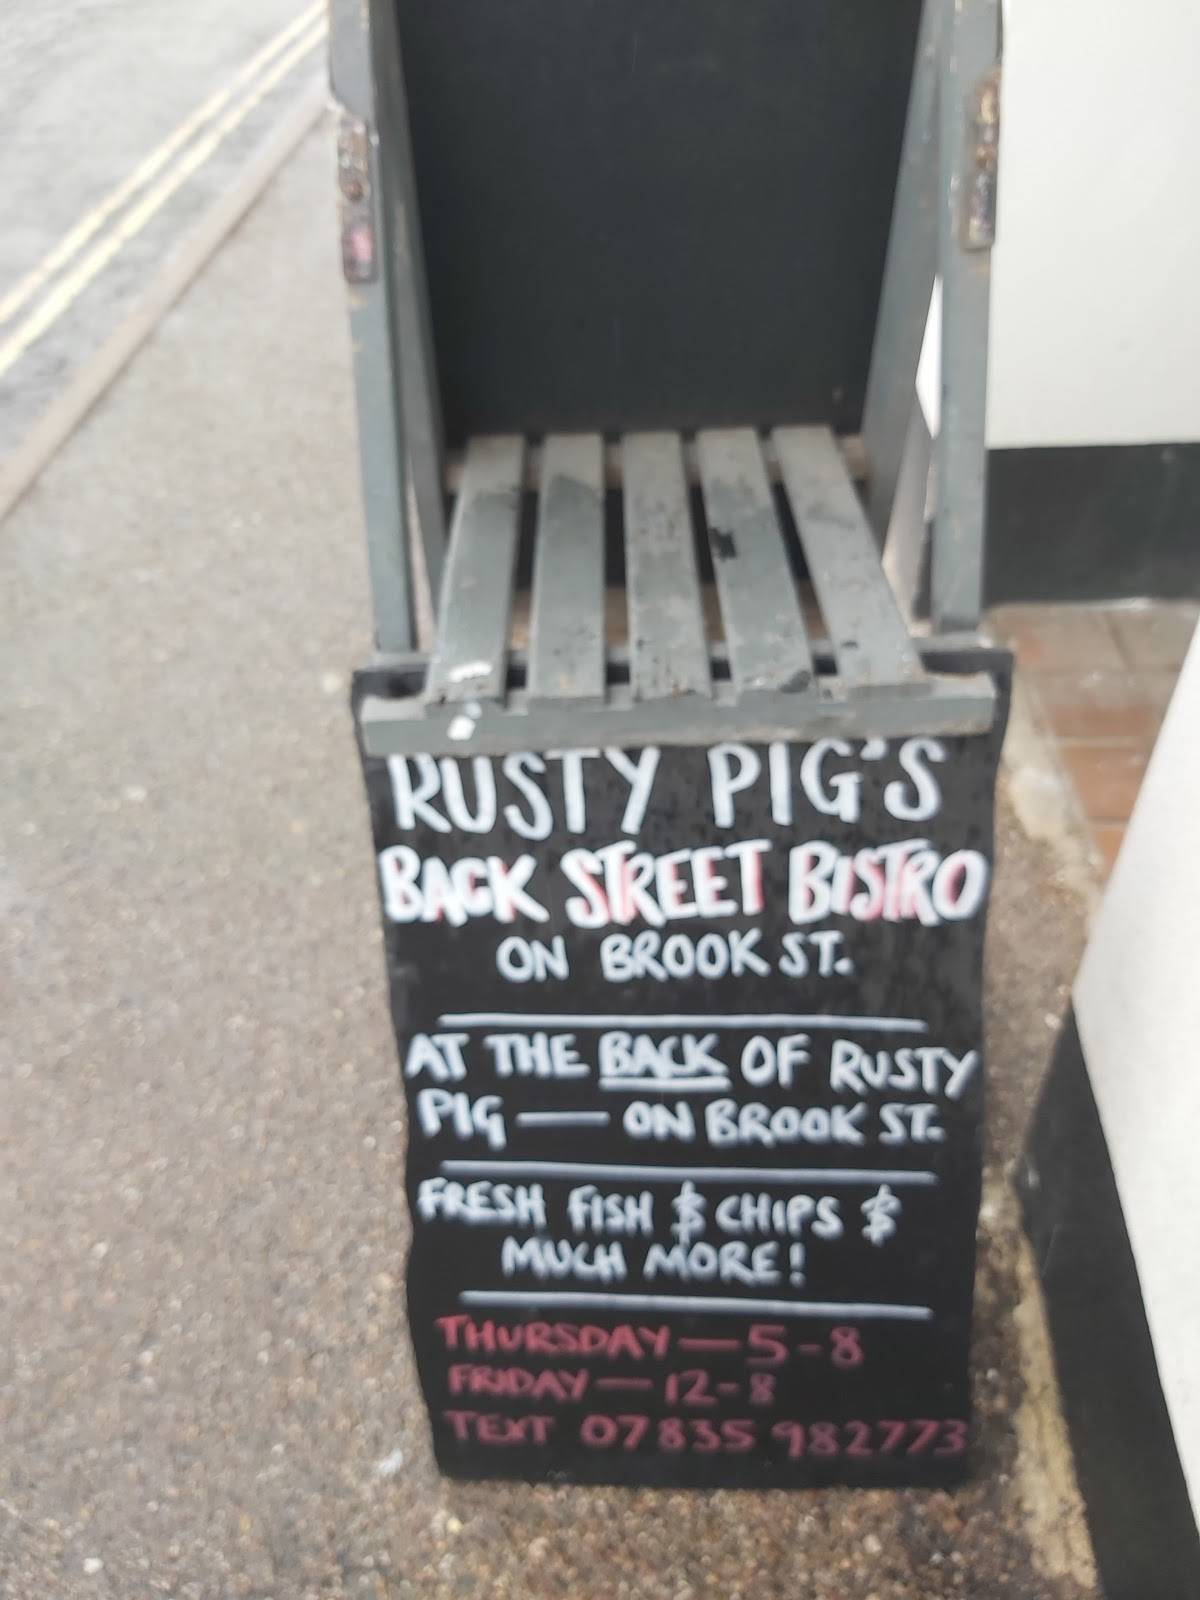 RUSTY PIG'S
BACK STREET BISTRO
ON BROOK ST.
AT THE BACK OF RUSTY
PIG — ON BROOK ST.
FRESH FISH & CHIPS &
MUCH MORE!
THURSDAY — 5-8
FRIDAY — 12-8
TEXT 07835 982773